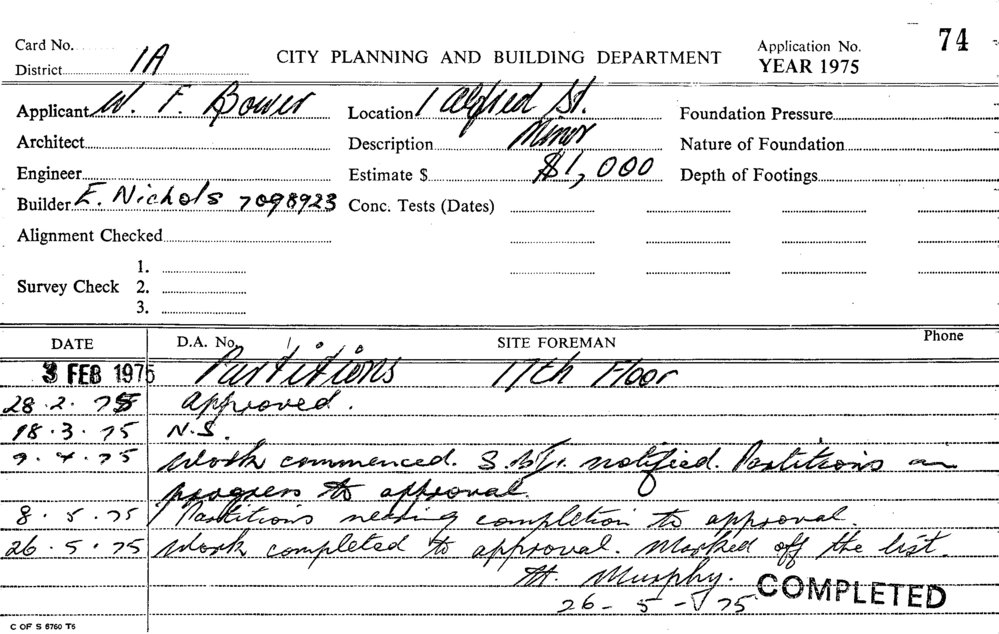 Card No. Application No. 74
District 1A CITY PLANNING AND BUILDING DEPARTMENT YEAR 1975
Applicant W. F. Bower Location 1 Alfred St. Foundation Pressure
Architect Description Minor Nature of Foundation
Engineer Estimate $ $1,000 Depth of Footings
Builder E. Nichols 7098923 Conc. Tests (Dates)
Alignment Checked
1.
Survey Check 2.
3.
DATE D.A. No. SITE FOREMAN Phone
3 FEB 1975 Partitions 17th Floor
28.2.75 Approved.
18.3.75 N.S.
9.4.75 Work commenced. notified. Partitions in
progress to approval.
8.5.75 Partitions nearing completion to approval.
26.5.75 Work completed to approval. Marked off the list.
Murphy.
26-5-75 COMPLETED
C OF S 6760 T5